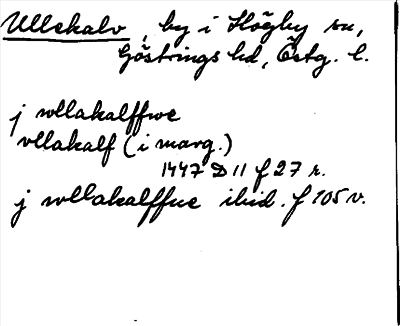 Ullekalv, by i Högby sn,
Göstrings hd, Östg. l.
j wllakalffwe
vllakalf (i marg.)
1447 D 11 f 27 r.
j wllakalffue ibid. f 105 v.